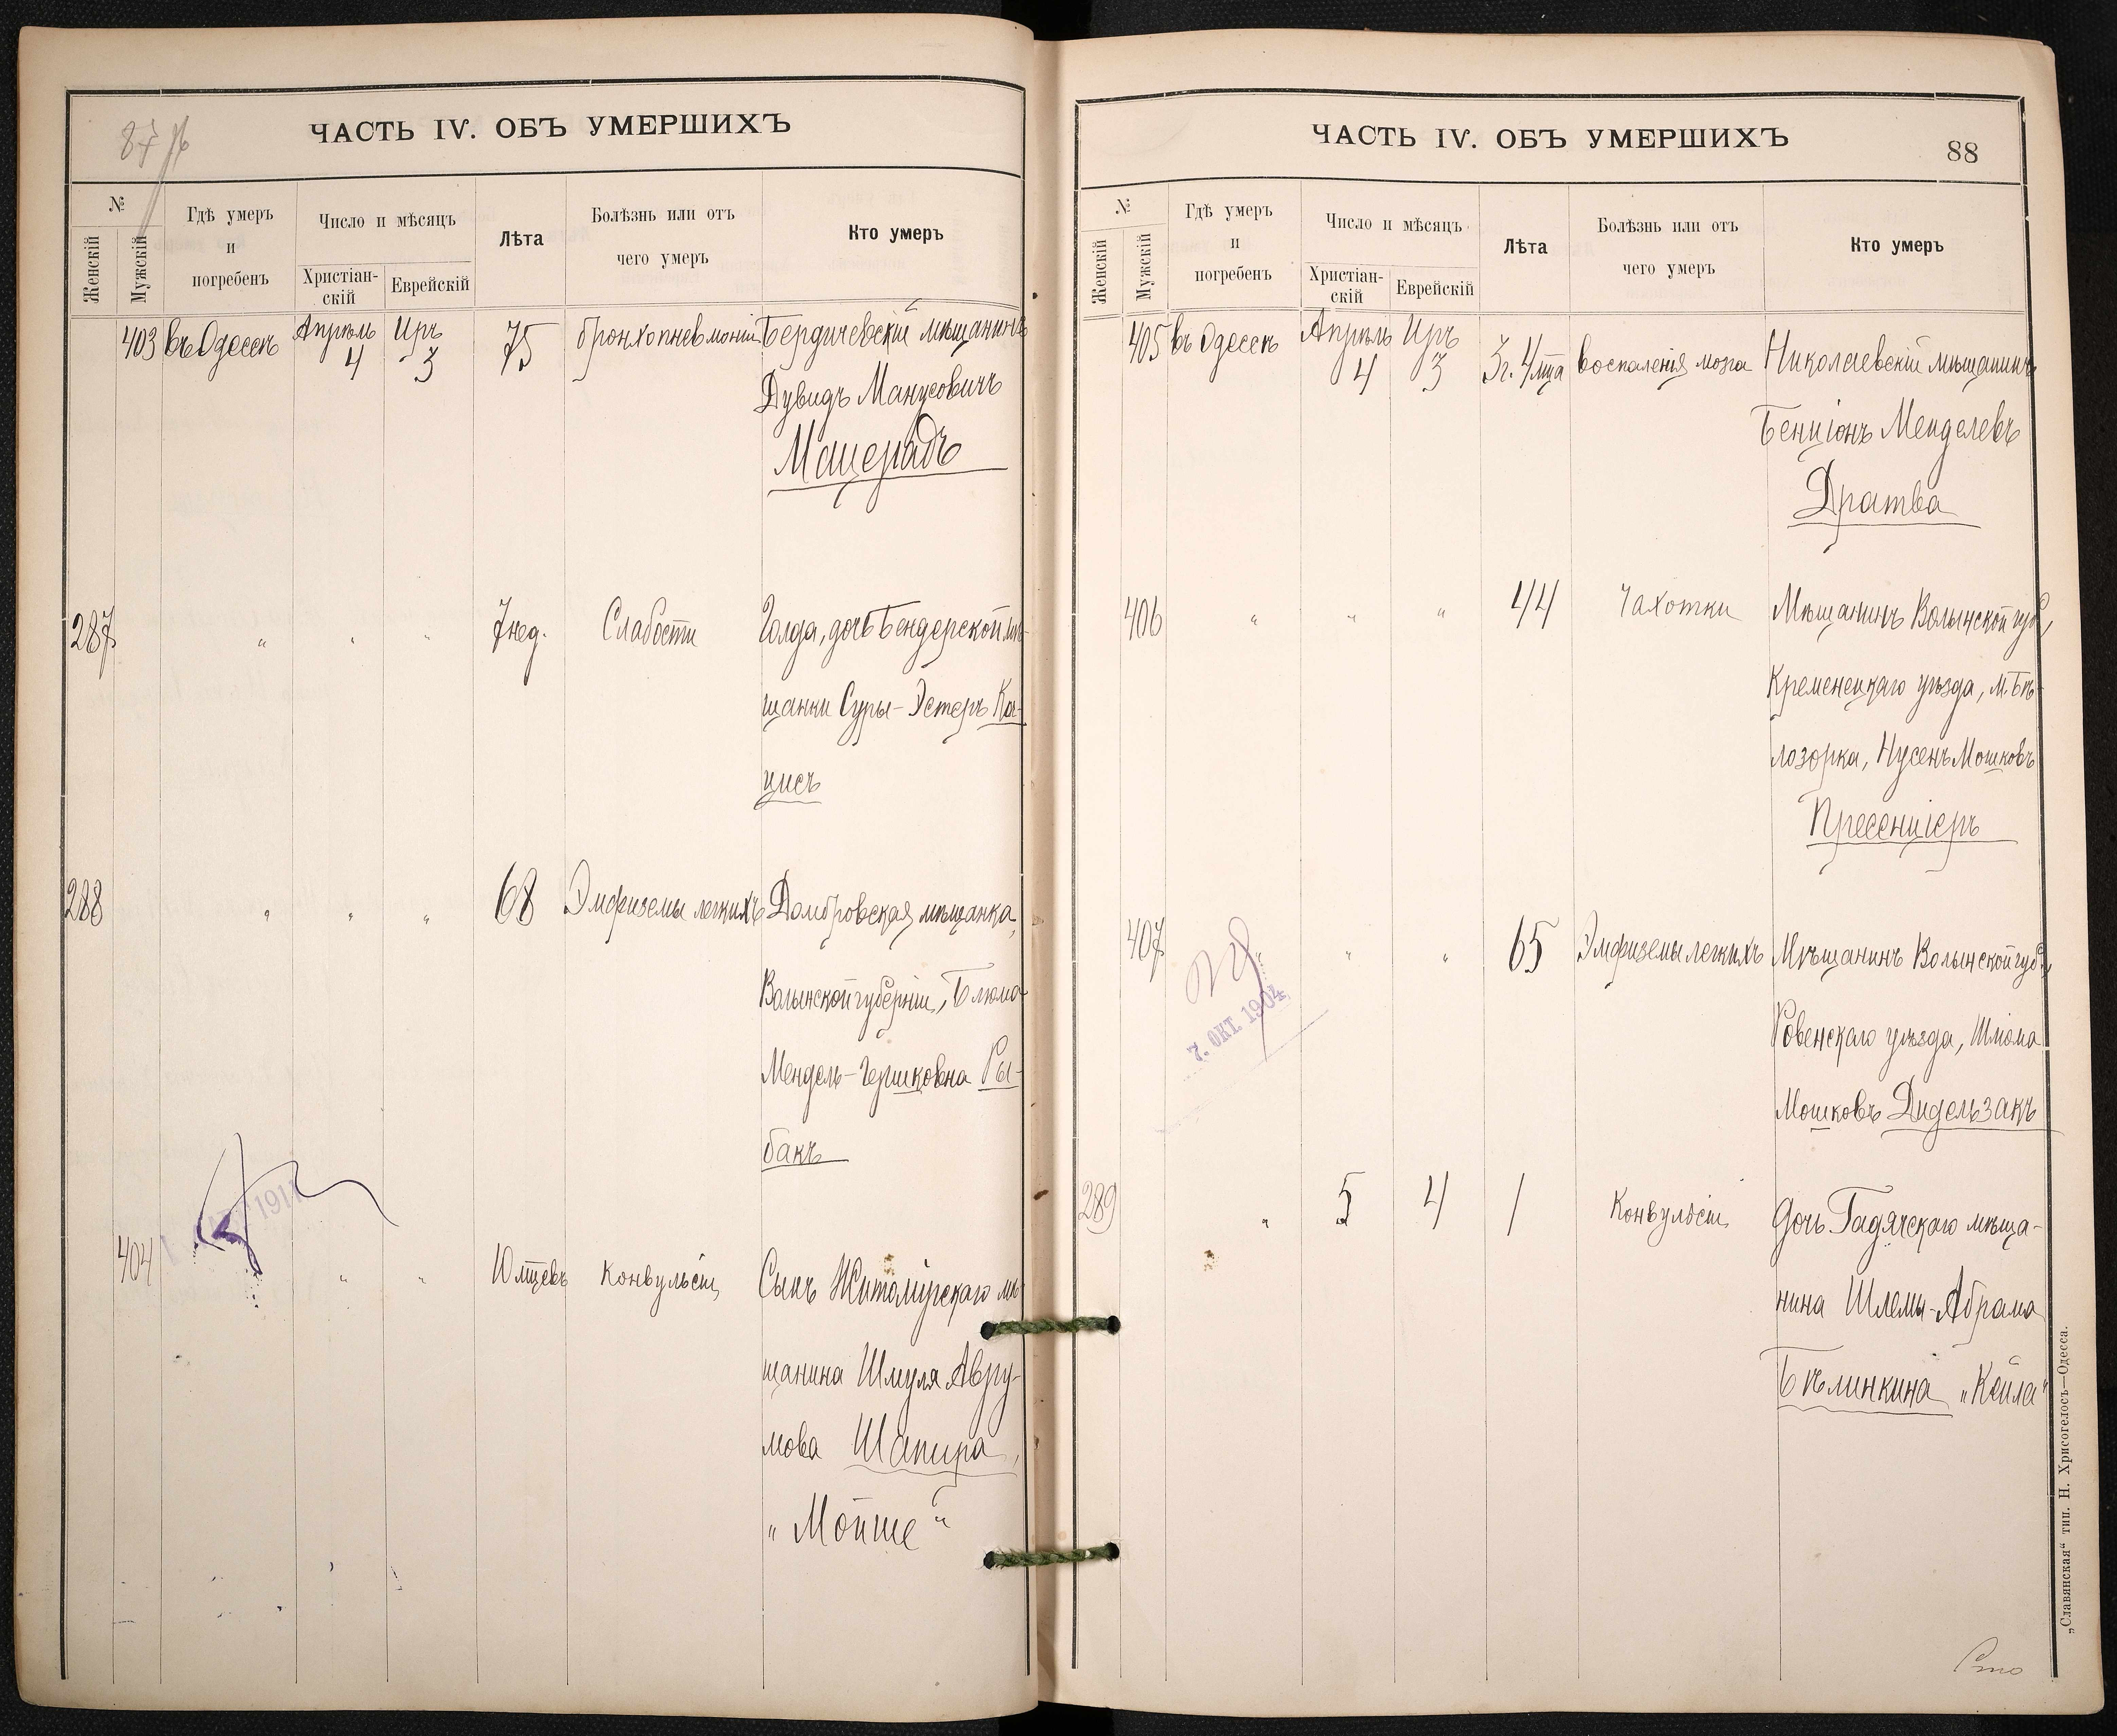 87 /16
ЧАСТЬ IV. ОБЪ УМЕРШИХЪ
№
Женскій
Мужскій
Гдѣ умеръ
и
погребенъ
Число и мѣсяцъ
Христіан-
скій
Еврейскій
Лѣта
Болѣзнь или отъ
чего умеръ
Кто умеръ
403 въ Одессѣ Апрѣль 4 Иръ 3 75 бронхопневмоніи Бердичевскій мѣщанинъ
Дувидъ Манусовичъ
Мацерадъ
287 " " " 7 нед. Слабости Голда, дочь Бендерской мѣ-
щанки Суры-Эстеръ Ка-
цисъ
288 " " " 68 Эмфиземы легкихъ Домбровская мѣщанка,
Волынской губерніи, Блюма
Мендель-Гершковна Ры-
бакъ
1911
404 " " 10 мцевъ Конвульсіи Сынъ Житомірскаго мѣ-
щанина Шмуля Авру-
мова Шапира,
"Мойше"
ЧАСТЬ IV. ОБЪ УМЕРШИХЪ
88
№
Женскій
Мужскій
Гдѣ умеръ
и
погребенъ
Число и мѣсяцъ
Христіан-
скій
Еврейскій
Лѣта
Болѣзнь или отъ
чего умеръ
Кто умеръ
405 въ Одессѣ Апрѣль 4 Иръ 3 3 г. 4 мца воспаленія мозга Николаевскій мѣщанинъ
Бенціонъ Менделевъ
Дратва
406 " " " 44 Чахотки Мѣщанинъ Волынской губ.,
Кременецкаго уѣзда, м. Бѣ-
лозорка, Нусенъ Мошковъ
Прессенціеръ
407 " " " 65 Эмфиземы легкихъ Мѣщанинъ Волынской губ.,
7. ОКТ. 1904
Ровенскаго уѣзда, Шлома
Мошковъ Дидельзакъ
289 " 5 4 1 Конвульсіи Дочь Гадячскаго мѣща-
нина Шлемы-Абрама
Бѣлинкина "Кейла"
„Славянская“ тип. Н. Хрисогелосъ—Одесса.